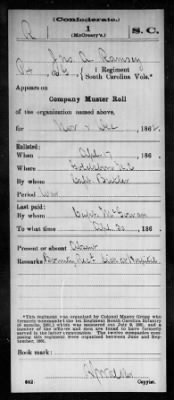 (Confederate.)
R 1 S. C.
(McCreary's.)
Jno. A. Ramsey
Pvt Co. 1 Regiment
South Carolina Vols.*
Appears on
Company Muster Roll
of the organization named above,
for Nov & Dec, 186
Enlisted:
When Apl 7, 186
Where N.C.
By whom Capt
Period War
Last paid:
By whom Capt
To what time Oct 30, 186
Present or absent Absent
Remarks Bounty Hospital
*This regiment was organized by Colonel Maxcy Gregg who
formerly commanded the 1st Regiment South Carolina Infantry
(6 months, 1861,) which was mustered out July 9, 1861, and a
number of the officers and men are found to have formerly
served in the latter organization. The twelve companies composing
this regiment were organized between June and September,
1861.
Book mark:
(642) Copyist.